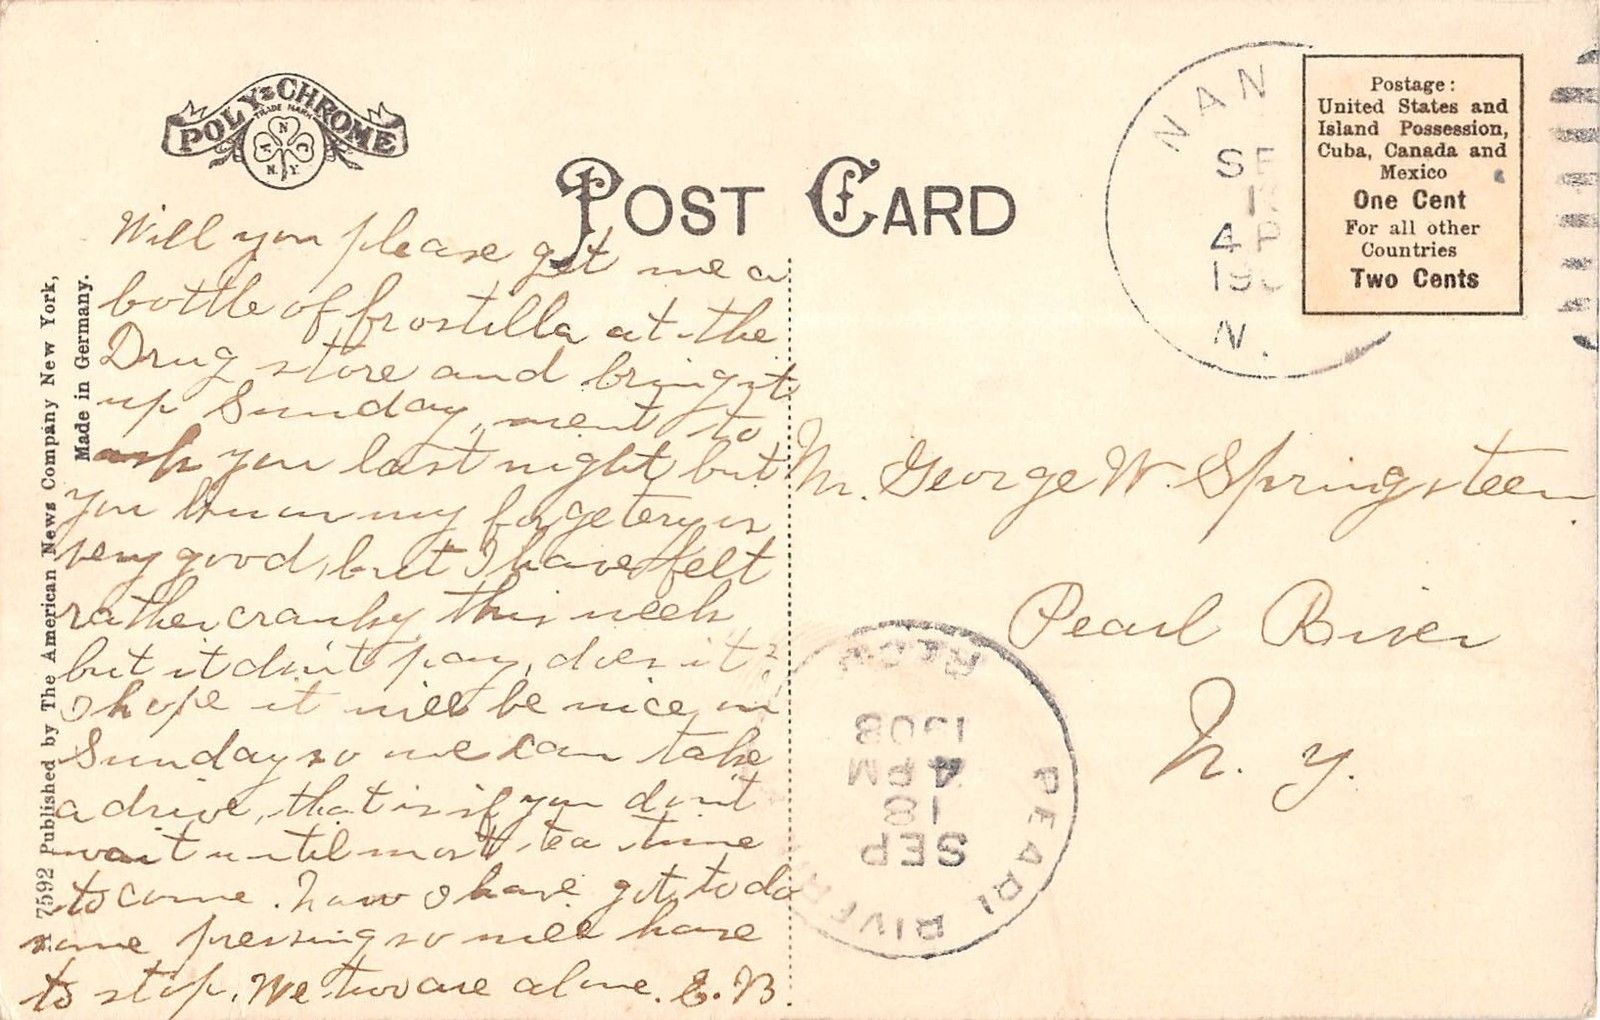 POLY-CHROME
TRADE MARK
A N C
N.Y.
POST CARD
NAN
SE
4 P
19
N.
Postage:
United States and
Island Possession,
Cuba, Canada and
Mexico
One Cent
For all other
Countries
Two Cents
7592 Published by The American News Company New York,
Made in Germany.
Will you please get me a
bottle of frostilla at the
Drug store and bring it
up Sunday, ment to
ask you last night but
you know my forgetery is
very good, but I have felt
rather cranky this week
but it din't pay, does it?
I hope it will be nice on
Sunday so we can take
a drive, that is if you don't
wait until most tea time
to come. Now I have got to do
some pressing so will have
to stop. We two are alone. E. B.
Mr. George W. Springsteen
Pearl River
N. Y.
PEARL RIVER
SEP
18
4 PM
1908
REC'D